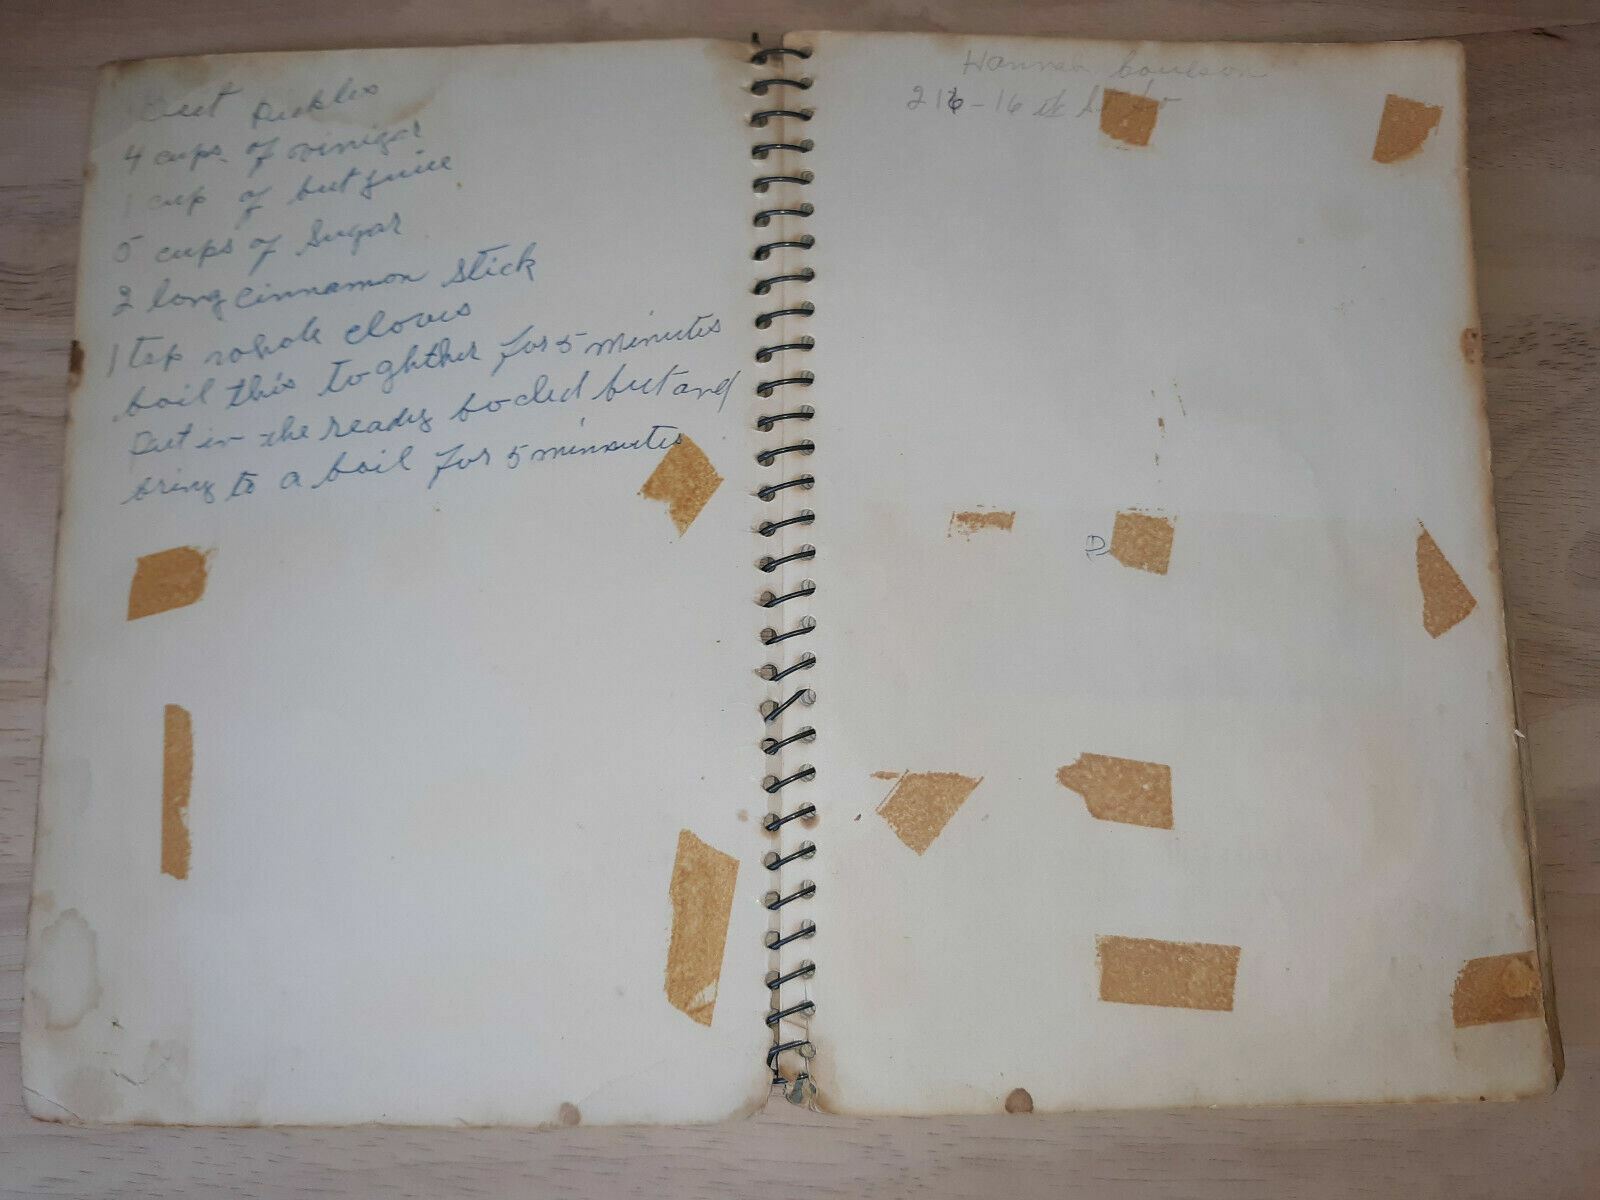 Beet Pickles
4 cups of vinigar
1 cup of beet juice
5 cups of sugar
2 long cinnamon stick
1 tsp whole cloves
boil this toghther for 5 minutes
Put in the ready boiled beet and
bring to a boil for 5 minnutes
Hannah Coulson
216-16 St